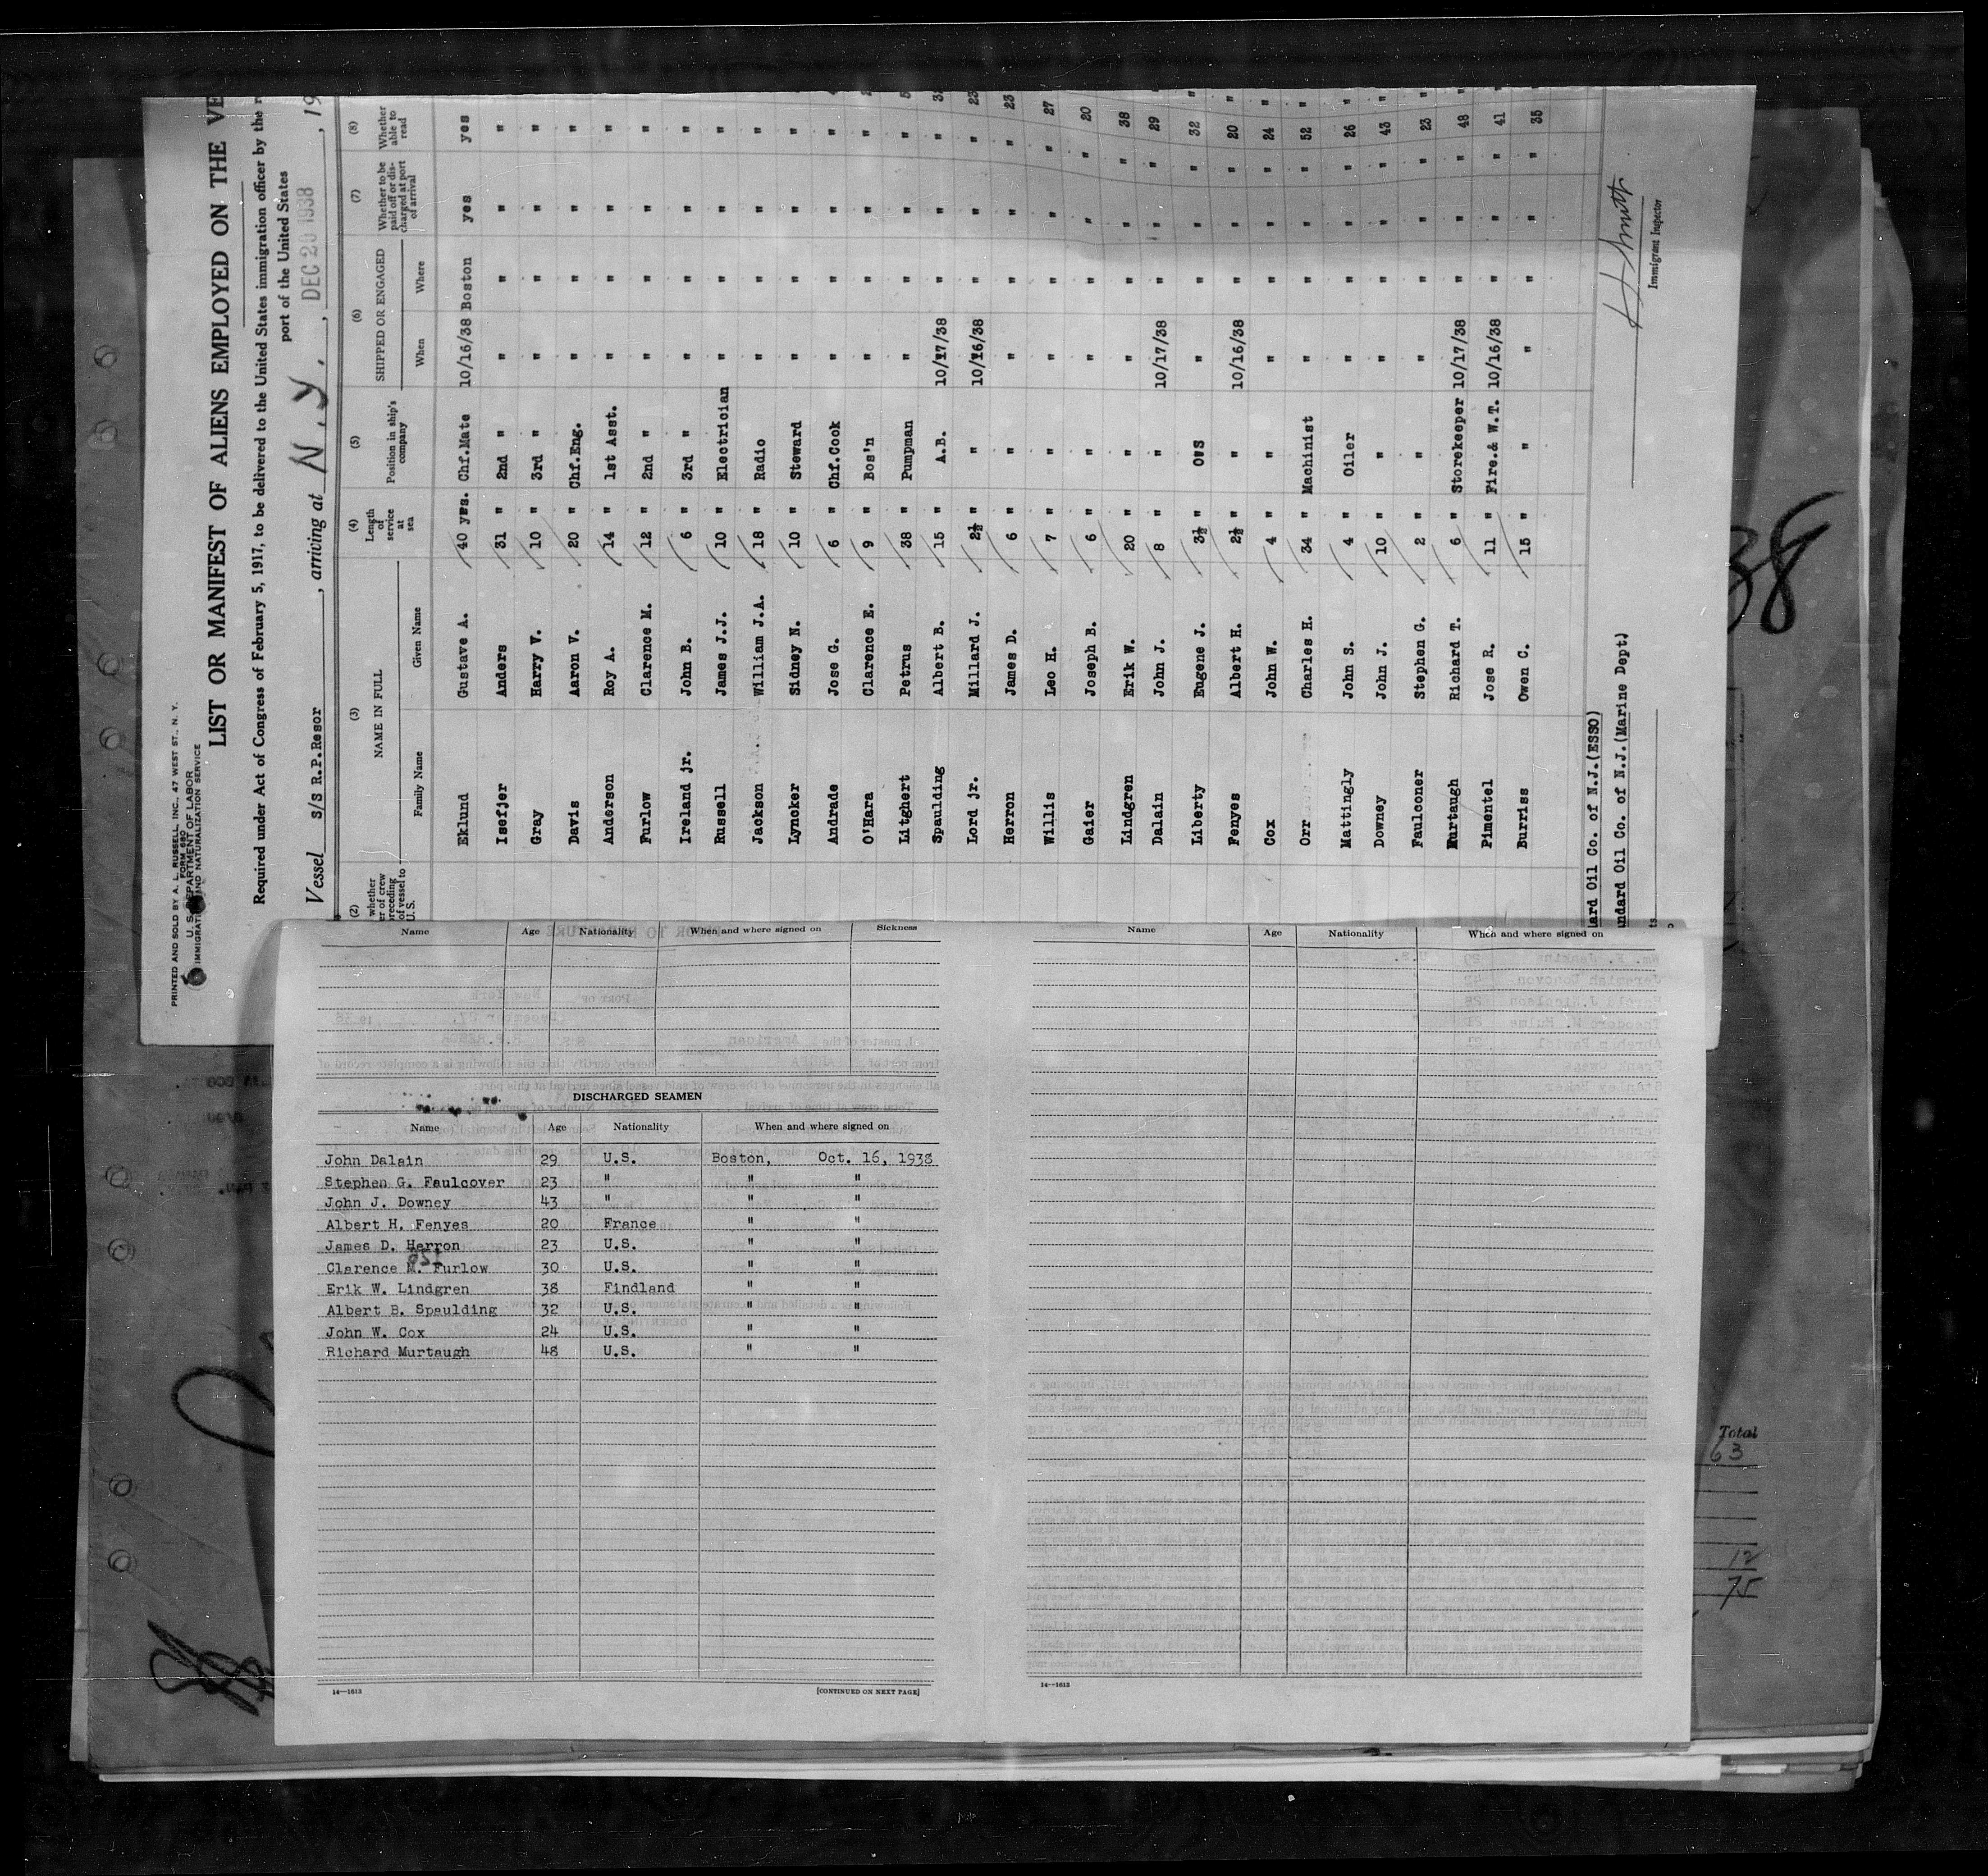 PRINTED AND SOLD BY A. L. RUSSELL, INC., 47 WEST ST., N. Y.
FORM 680
U. S. DEPARTMENT OF LABOR
IMMIGRATION AND NATURALIZATION SERVICE
LIST OR MANIFEST OF ALIENS EMPLOYED ON THE VE
Required under Act of Congress of February 5, 1917, to be delivered to the United States immigration officer by the r
port of the United States
Vessel S/S R.P.Resor , arriving at N. Y. , DEC 20 1938 , 19
(2) (3) (4) (5) (6) (7) (8)
whether
er of crew
preceding
of vessel to
U. S.
NAME IN FULL
Family Name Given Name
Length of service at sea
Position in ship's company
SHIPPED OR ENGAGED
When Where
Whether to be paid off or discharged at port of arrival
Whether able to read
Eklund Gustave A. 40 yrs. Chf.Mate 10/16/38 Boston yes yes
Isefjer Anders 31 " 2nd " " " " "
Gray Harry V. 10 " 3rd " " " " "
Davis Aaron V. 20 " Chf.Eng. " " " "
Anderson Roy A. 14 " 1st Asst. " " " "
Furlow Clarence M. 12 " 2nd " " " " "
Ireland jr. John B. 6 " 3rd " " " " "
Russell James J.J. 10 " Electrician " " " "
Jackson William J.A. 18 " Radio " " " "
Lyncker Sidney N. 10 " Steward " " " "
Andrade Jose G. 6 " Chf.Cook " " " "
O'Hara Clarence E. 9 " Bos'n " " " "
Litghert Petrus 38 " Pumpman " " " "
Spaulding Albert B. 15 " A.B. 10/17/38 " " "
Lord jr. Millard J. 2½ " " 10/16/38 " " " 23
Herron James D. 6 " " " " " " 23
Willis Leo H. 7 " " " " " " 27
Gaier Joseph B. 6 " " " " " " 20
Lindgren Erik W. 20 " " " " " " 38
Dalain John J. 8 " " 10/17/38 " " " 29
Liberty Eugene J. 3½ " O.S " " " " 32 "
Fenyes Albert H. 2½ " " 10/16/38 " " " 20 "
Cox John W. 4 " " " " " " 24 "
Orr Charles H. 34 " Machinist " " " " 52 "
Mattingly John S. 4 " Oiler " " " " 26 "
Downey John J. 10 " " " " " " 43 "
Faulconer Stephen G. 2 " " " " " " 23 "
Murtaugh Richard T. 6 " Storekeeper 10/17/38 " " " 48 "
Pimentel Jose R. 11 " Fire.& W.T. 10/16/38 " " " 41 "
Burriss Owen C. 15 " " " " " " 35
dard Oil Co. of N.J.(ESSO)
andard Oil Co. of N.J.(Marine Dept)
Immigrant Inspector
38
Name Age Nationality When and where signed on Sickness
DISCHARGED SEAMEN
Name Age Nationality When and where signed on
John Dalain 29 U.S. Boston, Oct. 16, 1938
Stephen G. Faulcover 23 " " "
John J. Downey 43 " " "
Albert H. Fenyes 20 France " "
James D. Herron 23 U.S. " "
Clarence M. Furlow 30 U.S. " "
Erik W. Lindgren 38 Findland " "
Albert B. Spaulding 32 U.S. " "
John W. Cox 24 U.S. " "
Richard Murtaugh 48 U.S. " "
14—1613 [CONTINUED ON NEXT PAGE]
Name Age Nationality When and where signed on
14—1613
Total
63
12
75